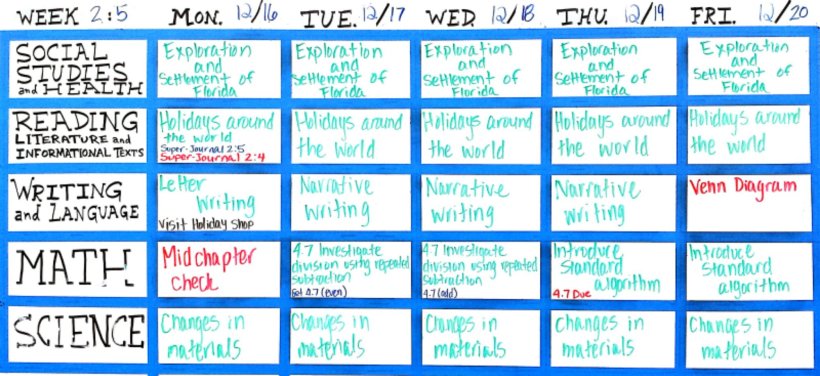 WEEK 2:5
MON. 12/16
TUE. 12/17
WED. 12/18
THU. 12/19
FRI. 12/20
SOCIAL
STUDIES
and HEALTH
Exploration
and
Settlement of
Florida
Exploration
and
Settlement of
Florida
Exploration
and
Settlement of
Florida
Exploration
and
Settlement of
Florida
Exploration
and
Settlement of
Florida
READING
LITERATURE and
INFORMATIONAL TEXTS
Holidays around
the world
Super-Journal 2:5
Super-Journal 2:4
Holidays around
the world
Holidays around
the world
Holidays around
the world
Holidays around
the world
WRITING
and LANGUAGE
Letter
Writing
Visit Holiday Shop
Narrative
writing
Narrative
writing
Narrative
writing
Venn Diagram
MATH
Midchapter
check
4.7 Investigate
division using repeated
subtraction
4.7 (even)
4.7 Investigate
division using repeated
subtraction
4.7 (odd)
Introduce
standard
algorithm
4.7 Due
Introduce
standard
algorithm
SCIENCE
Changes in
materials
Changes in
materials
Changes in
materials
Changes in
materials
Changes in
materials